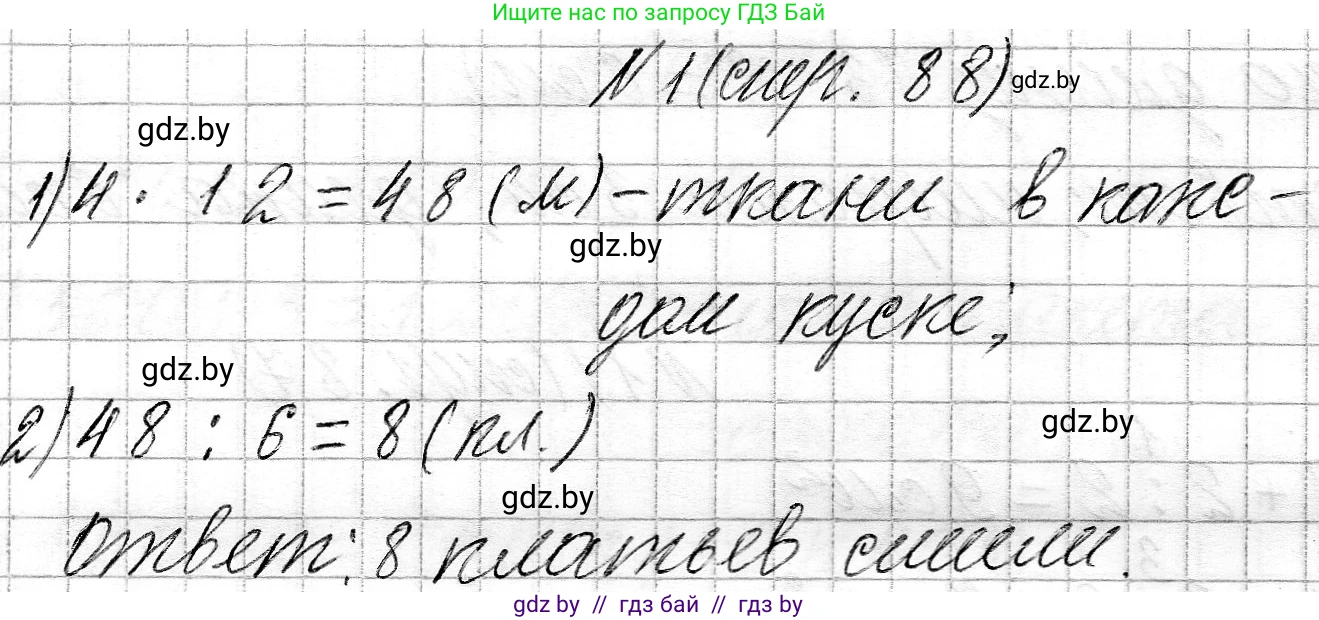 Ищите нас по запросу ГДЗ Бай
N 1 (стр. 88) gdz.by
gdz.by
1) 4 · 12 = 48 (м) - ткани в каж-
gdz.by
дом куске;
gdz.by
2) 48 : 6 = 8 (пл.)
gdz.by
gdz.by
Ответ: 8 платьев сшили.
gdz.by // гдз бай // gdz.by